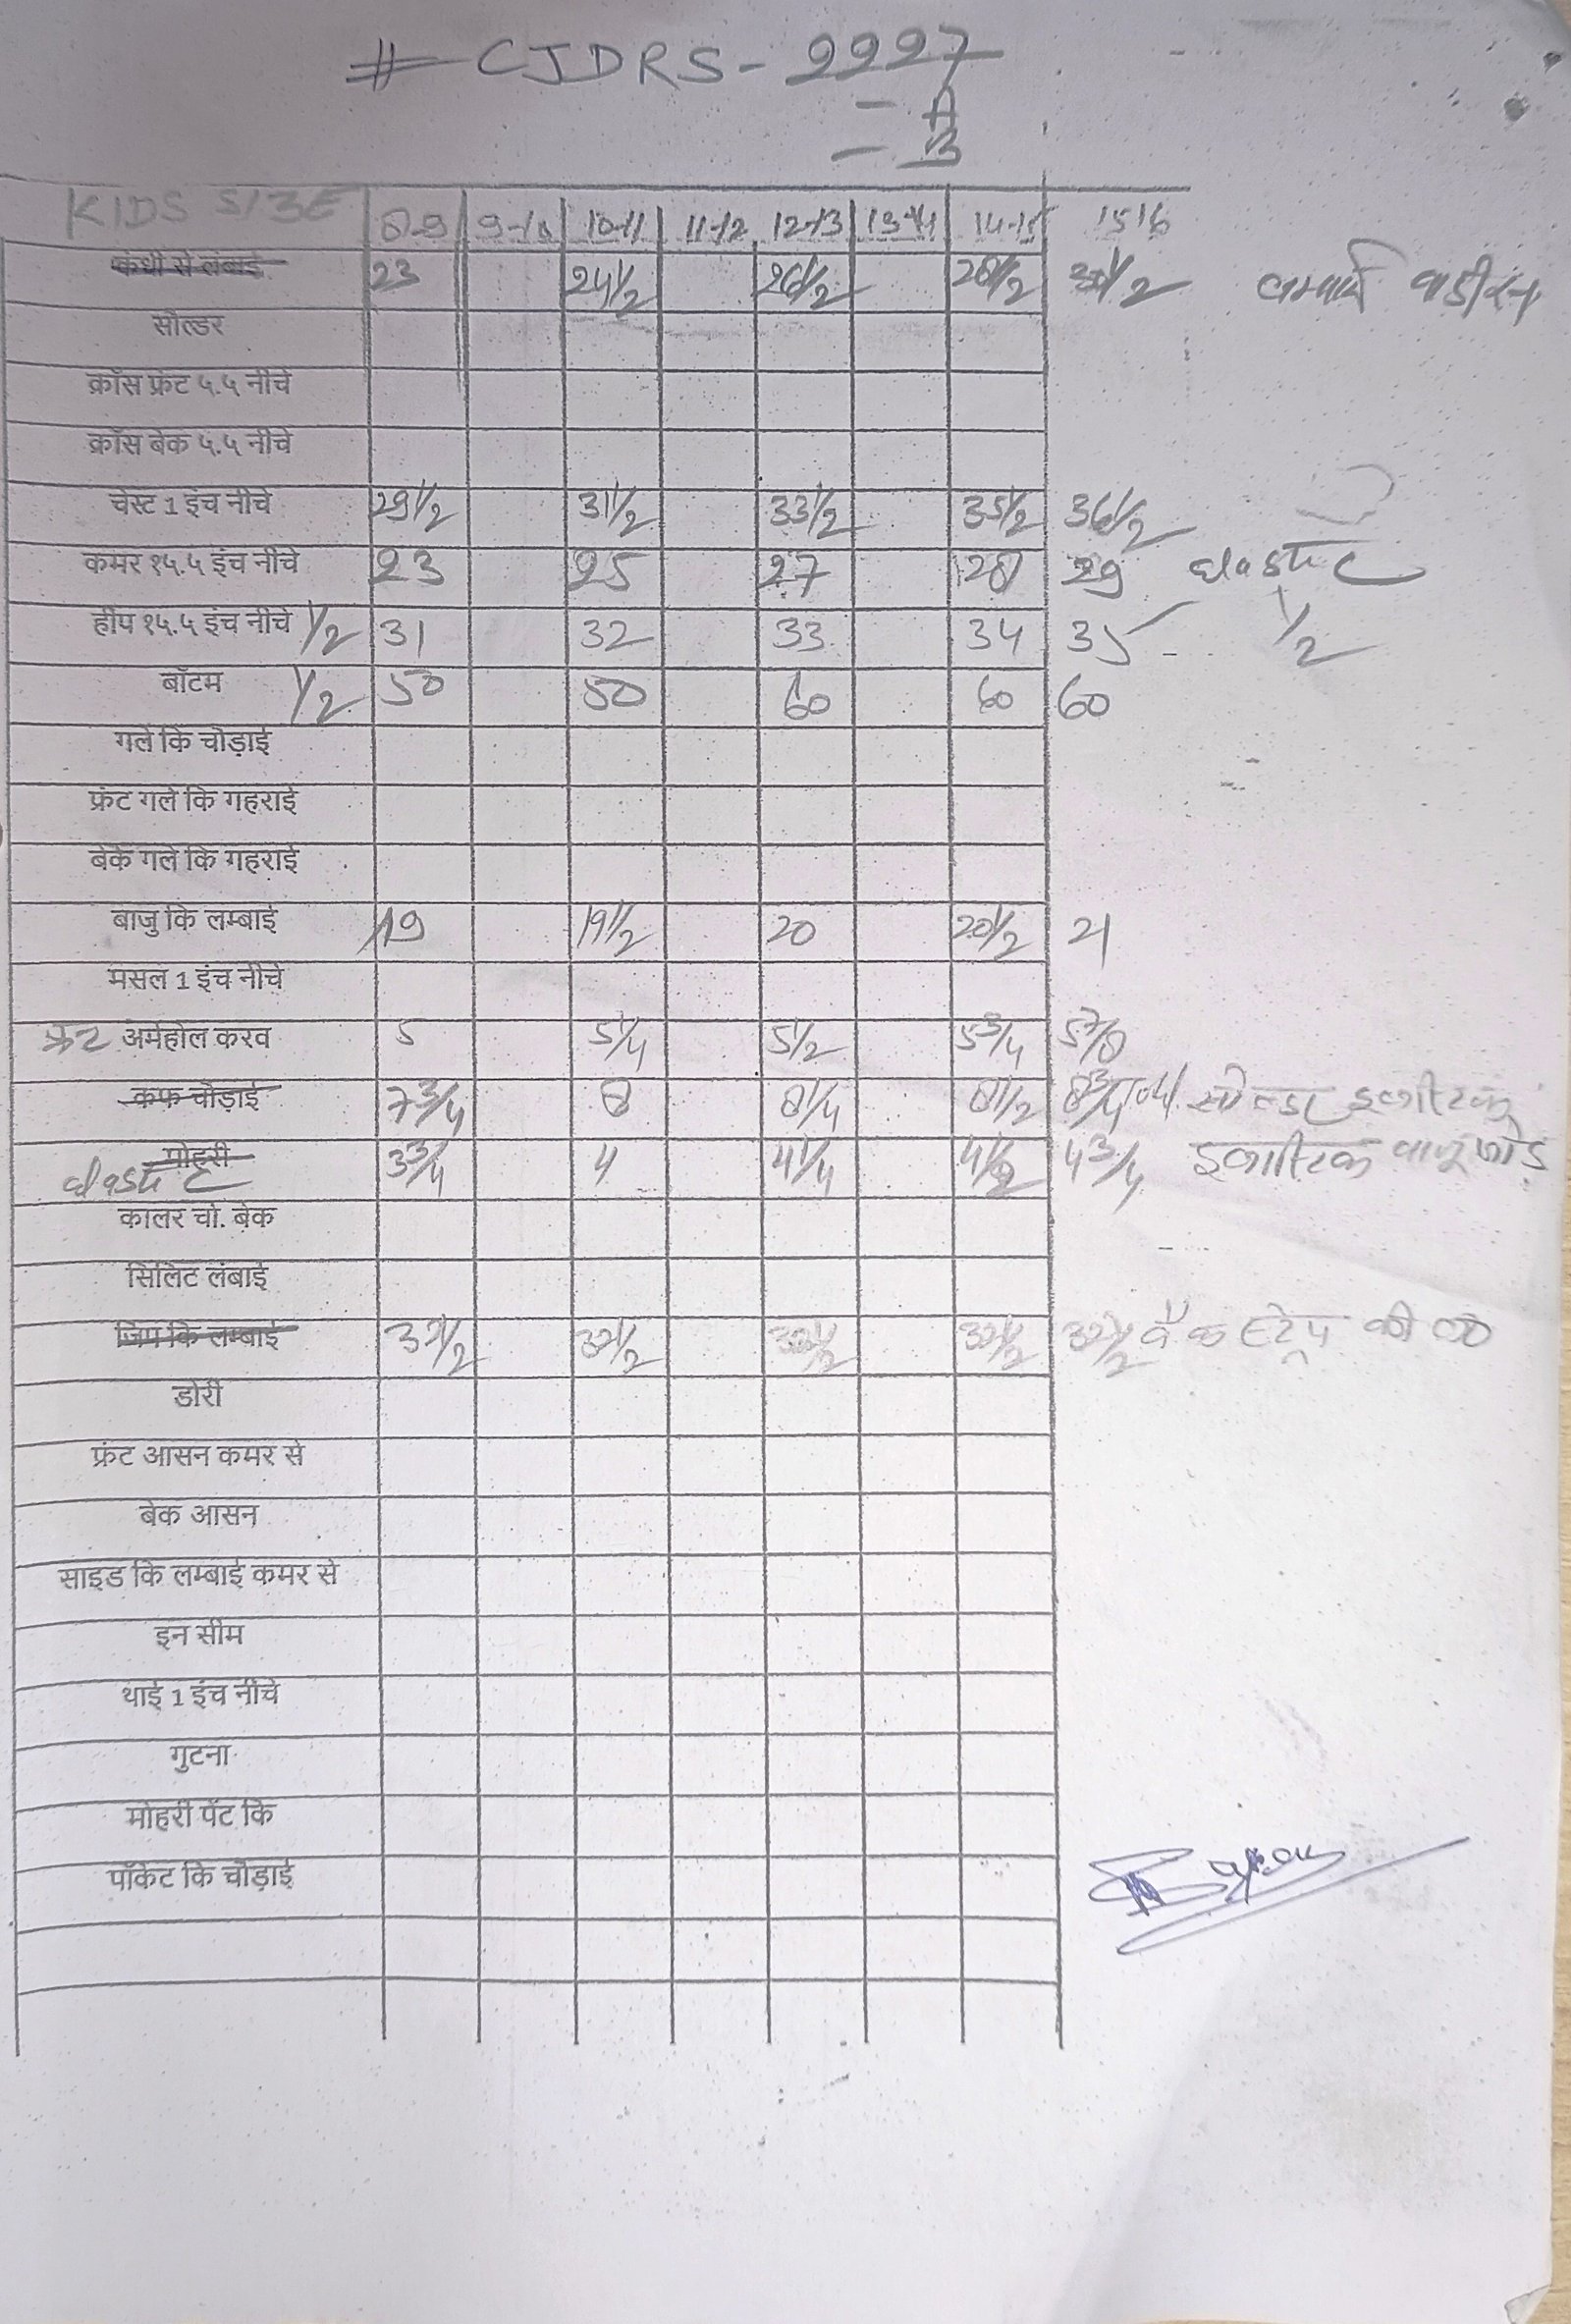 # CJDRS - 2227
- A
- B
KIDS SIZE 8-9 9-10 10-11 11-12 12-13 13-14 14-15 15 16
कंधी से लंबाई 23 24 1/2 26 1/2 28 1/2 30 1/2 लम्बाई
सोल्डर
क्रॉस फ्रंट ५.५ नीचे
क्रॉस बेक ५.५ नीचे
चेस्ट 1 इंच नीचे 29 1/2 31 1/2 33 1/2 35 1/2 36 1/2
कमर १५.५ इंच नीचे 23 25 27 28 29 elastic
हीप १५.५ इंच नीचे 1/2 31 32 33 34 35 1/2
बॉटम 1/2 50 50 60 60 60
गले कि चौड़ाई
फ्रंट गले कि गहराई
बेके गले कि गहराई
बाजु कि लम्बाई 19 19 1/2 20 20 1/2 21
मसल 1 इंच नीचे
अर्महोल करव 5 5 1/4 5 1/2 5 3/4 5 7/8
कफ चौड़ाई 7 3/4 8 8 1/4 8 1/2 8 3/4 सोल्डर इलास्टिक
मोहरी elastic 3 3/4 4 4 1/4 4 1/2 4 3/4 इलास्टिक बाजू जोड़
कालर चो. बेक
सिलिट लंबाई
जिप कि लम्बाई 32 1/2 32 1/2 32 1/2 32 1/2 32 1/2 बैक स्ट्रेप की
डोरी
फ्रंट आसन कमर से
बेक आसन
साइड कि लम्बाई कमर से
इन सीम
थाई 1 इंच नीचे
गुटना
मोहरी पेंट कि
पॉकेट कि चौड़ाई